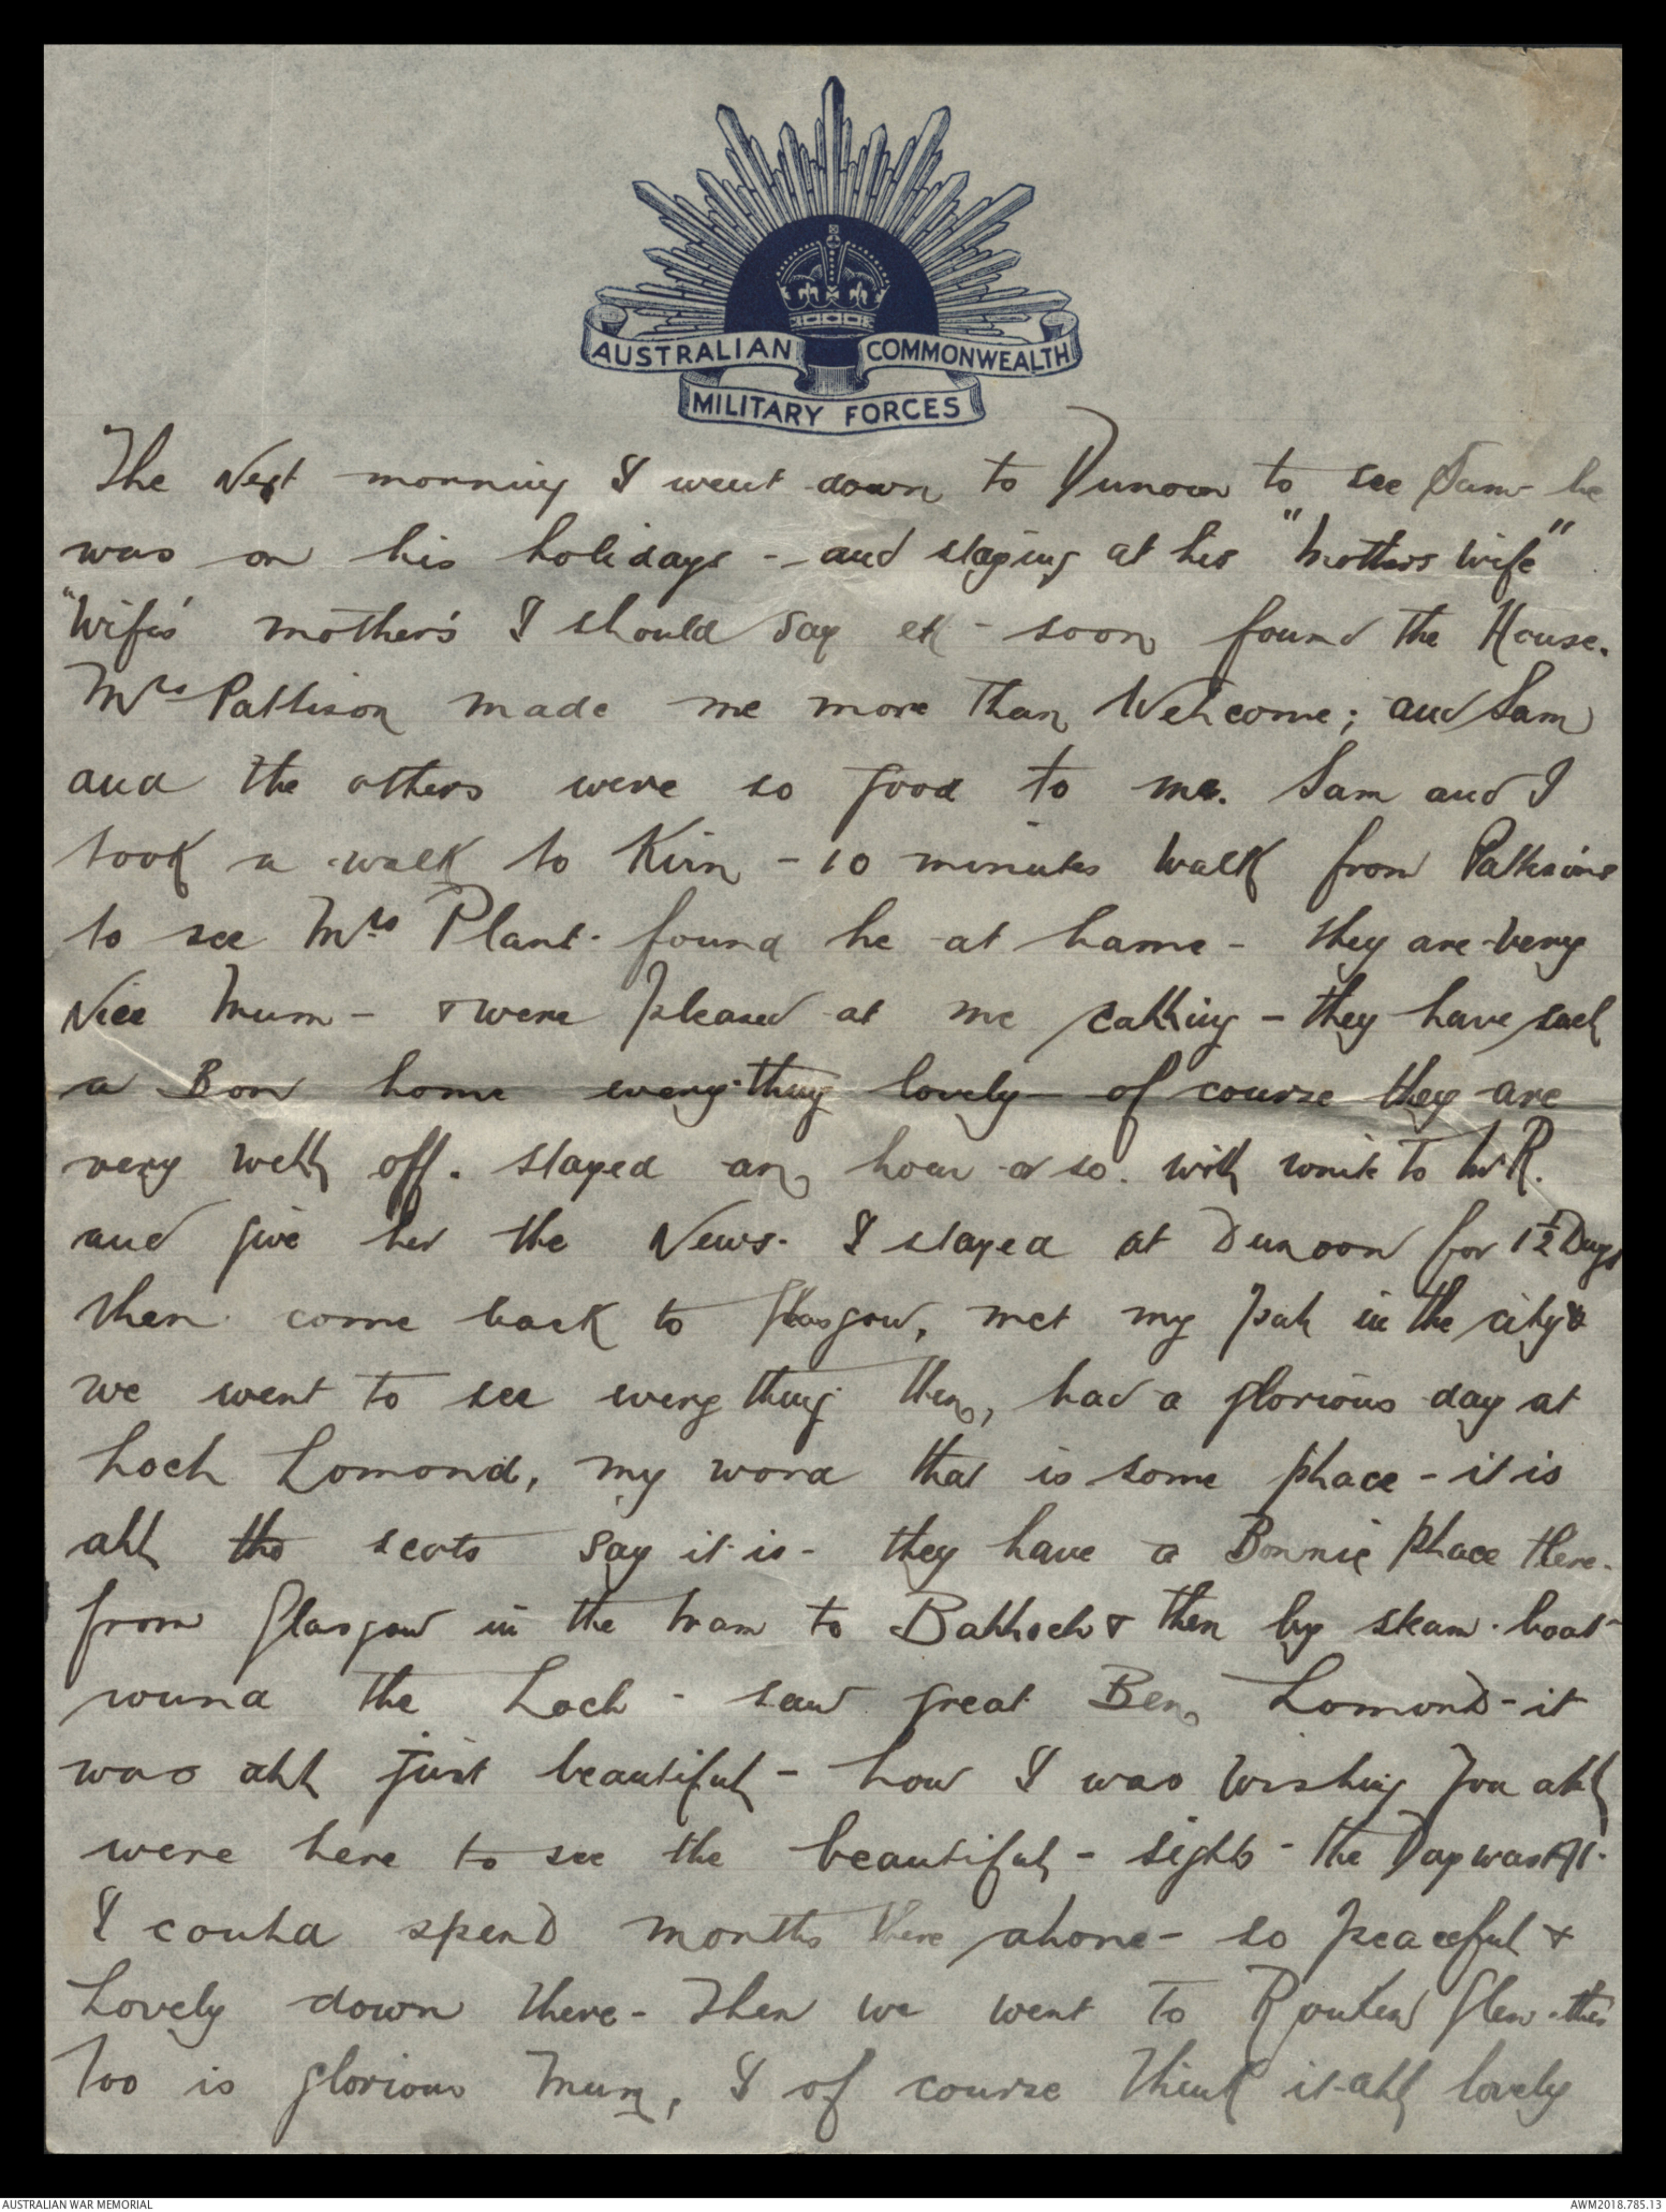 AUSTRALIAN COMMONWEALTH
MILITARY FORCES
The Next morning I went down to Dunoon to see Sam - he
was on his holidays - and staying at his "mothers wife"
"Wife's mother's I should say eh - soon found the House.
Mrs Pattison made me more than Welcome; and Sam
and the others were so good to me. Sam and I
took a walk to Kirn - 10 minutes walk from Pattisons
to see Mrs Plant. found he at hame - they are very
Nice Mum - & were pleased at me calling - they have such
a Bon home everything lovely - of course they are
very well off. stayed an hour or so. will write to
and give her the News. I stayed at Dunoon for 1½ Days
then come back to Glasgow, met my pal in the city &
we went to see everything then, had a glorious day at
Loch Lomond, my word that is some place - it is
all the scots say it is - they have a Bonnie place there.
from Glasgow in the tram to Balloch & then by steam-boat
round the Loch - saw great Ben Lomond - it
was all just beautiful - how I was wishing you all
were here to see the beautiful - sights - the Day was A1.
I could spend months there alone - so peaceful &
Lovely down there - Then we went to Rouken Glen - this
Too is glorious Mum, I of course think it all lovely
AUSTRALIAN WAR MEMORIAL
AWM2018.785.13